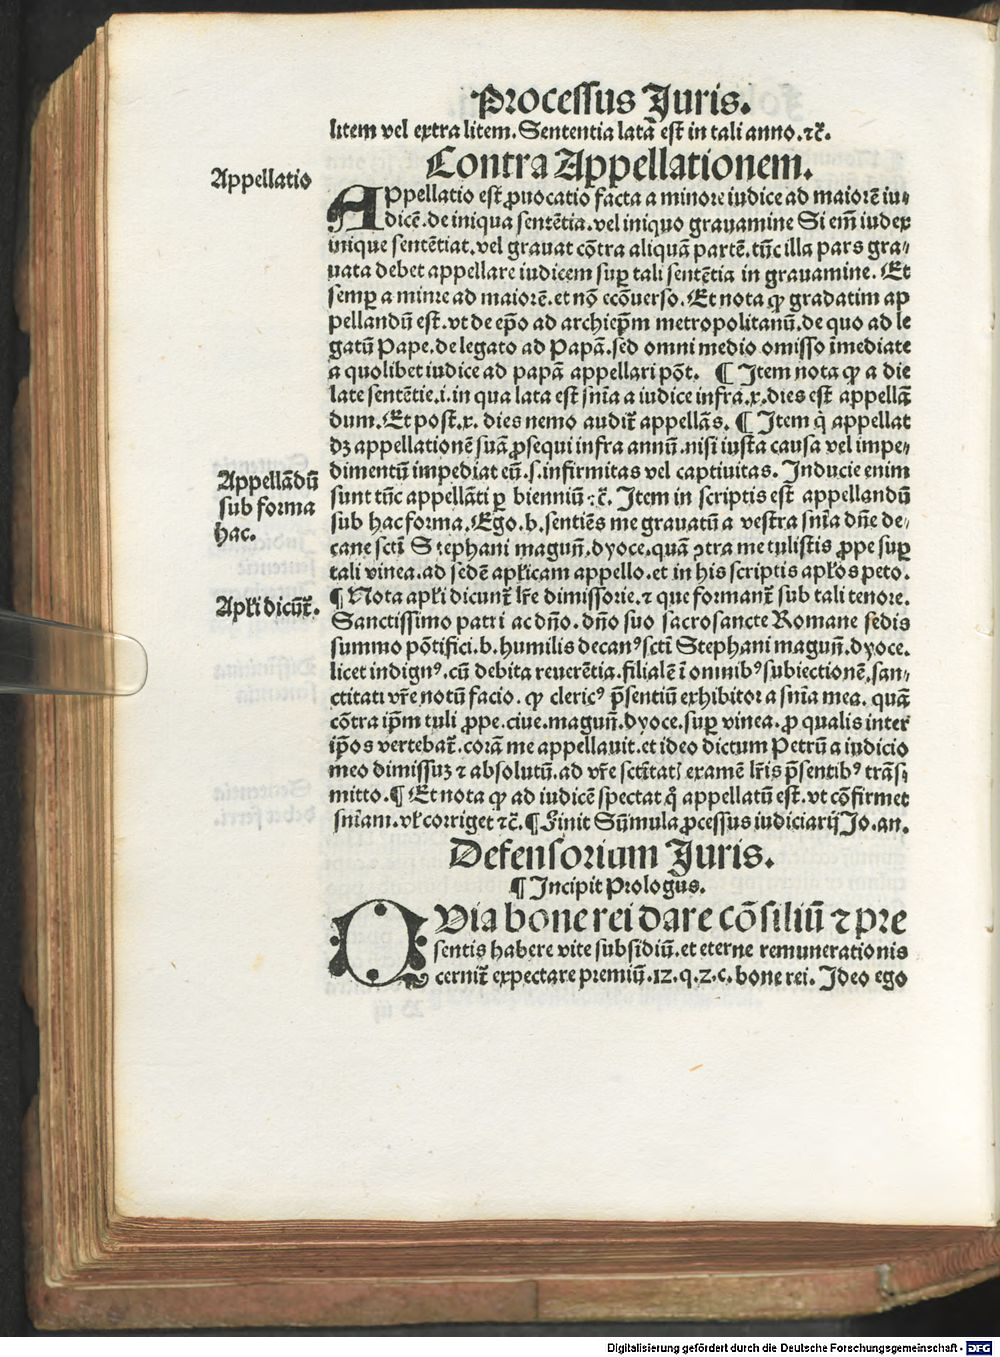 Processus Juris.
litem vel extra litem. Sententia latā est in tali anno. ⁊c̄.
Contra Appellationem.
Appellatio
APpellatio est ꝓuocatio facta a minore iudice ad maiorē iu-
dicē. de iniqua sentētia. vel iniquo grauamine Si em̄ iudex
inique sentētiat. vel grauat cōtra aliquā partē. tūc illa pars gra-
uata debet appellare iudicem suꝑ tali sentētia in grauamine. Et
semꝑ a minore ad maiorē. et nō ecōuerso. Et nota ꝙ gradatim ap
pellandū est. vt de ep̄o ad archiep̄m metropolitanū. de quo ad le
gatū Pape. de legato ad Papā. sed omni medio omisso īmediate
a quolibet iudice ad papā appellari pōt. ¶ Item nota ꝙ a die
late sentētie. i. in qua lata est sn̄ia a iudice infra. x. dies est appellā
dum. Et post. x. dies nemo audit᷑ appellās. ¶ Item q̇ appellat
dꝫ appellationē suā ꝓsequi infra annū. nisi iusta causa vel impe-
dimentū impediat eū. s. infirmitas vel captiuitas. Inducie enim
Appellādū
sub forma
hac.
sunt tūc appellāti ꝑ bienniū ⁊c̄. Item in scriptis est appellandū
sub hac forma. Ego. b. sentiēs me grauatū a vestra sn̄ia dn̄e de-
cane sctī Stephani magun̄. dyoce. quā ꝯtra me tulistis ꝓpe suꝑ
tali vinea. ad sedē apl̄icam appello. et in his scriptis apl̄os peto.
Apl̄i dicūt᷑.
¶ Nota apl̄i dicunt᷑ lr̄e dimissorie. ⁊ que formant᷑ sub tali tenore.
Sanctissimo patri ac dn̄o. dn̄o suo sacrosancte Romane sedis
summo pōtifici. b. humilis decanꝰ sctī Stephani magun̄. dyoce.
licet indignꝰ. cū debita reuerētia. filialē ī omnibꝰ subiectionē. san-
ctitati vr̄e notū facio. ꝙ clericꝰ p̄sentiū exhibitor a sn̄ia mea. quā
cōtra ip̄m tuli ꝓpe. ciue. magun̄. dyoce. suꝑ vinea. ꝓ qualis inter
ip̄os vertebat᷑. corā me appellauit. et ideo dictum Petrū a iudicio
meo dimissuꝫ ⁊ absolutū. ad vr̄e sctītatꝭ examē lr̄is p̄sentibꝰ trās-
mitto. ¶ Et nota ꝙ ad iudicē spectat q̇ appellatū est. vt cōfirmet
sn̄iam. vl̄ corriget ⁊c̄. ¶ Finit Sūmula ꝓcessus iudiciarij Jo. an.
Defensorium Juris.
¶ Incipit Prologus.
QVia bone rei dare cōsiliū ⁊ pre
sentis habere vite subsidiū. et eterne remunerationis
cernit᷑ expectare premiū. 12. q. 2. c. bone rei. Ideo ego
Digitalisierung gefördert durch die Deutsche Forschungsgemeinschaft - DFG